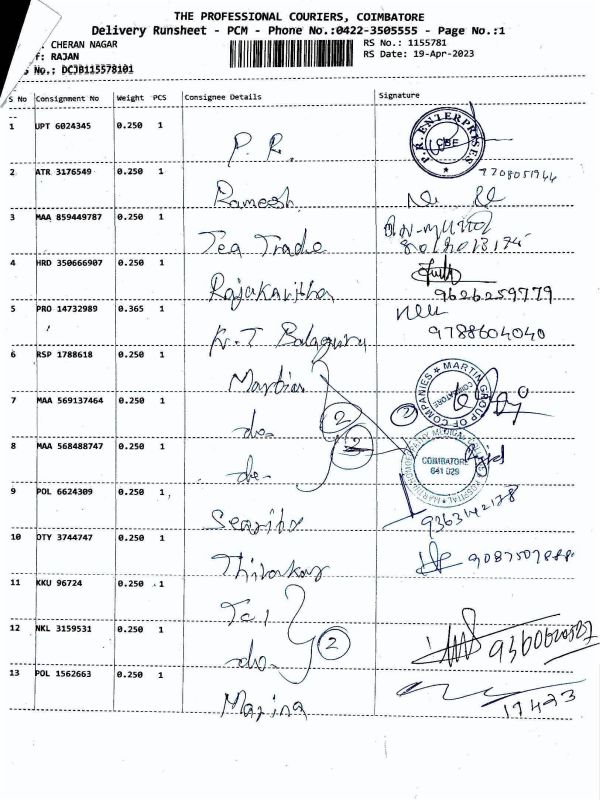 THE PROFESSIONAL COURIERS, COIMBATORE
Delivery Runsheet - PCM - Phone No.:0422-3505555 - Page No.:1
: CHERAN NAGAR
RS No.: 1155781
f: RAJAN
RS Date: 19-Apr-2023
No.: DCJB115578101
S No Consignment No Weight PCS Consignee Details Signature
1 UPT 6024345 0.250 1 P. R.
P.R. ENTERPRISES CBE
2 ATR 3176549 0.250 1 Ramesh
7708051944
3 MAA 859449787 0.250 1 Tea Trade
4 HRD 350666907 0.250 1
9626259779
5 PRO 14732989 0.365 1 K.T Balaguru
9788604040
6 RSP 1788618 0.250 1 Martin
MARTIN GROUP OF COMPANIES COIMBATORE
7 MAA 569137464 0.250 1 do 2 2
8 MAA 568488747 0.250 1 do 2
COIMBATORE
641 029
HOSPITAL
9 POL 6624309 0.250 1
9363142178
10 OTY 3744747 0.250 1
11 KKU 96724 0.250 1
12 NKL 3159531 0.250 1 do 2
13 POL 1562663 0.250 1 Mazina